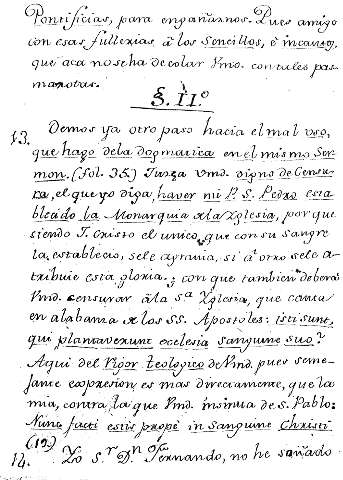 Pontificias, para engañarnos. Pues amigo
con esas fullerias á los sencillos, é incautos,
que acá no se ha de colar Vmd. con tales pas-
marotas.
§. II.º
13. Demos ya otro paso hacia el mal uso,
que hago de la dogmatica en el mismo Ser-
mon. (Fol. 35.) Juzga Vmd. digno de Censu-
ra, el que yo diga, haver mi P. S. Pedro esta-
blecido la Monarquia de la Yglesia, porque
siendo J. Cristo el unico, que con su sangre
la, establecio, se le agravia, si á otro se le a-
tribuie esta gloria.; con que tambien deberá
Vmd. censurar á la Sta Yglesia, que canta
en alabanza de los SS. Apostoles: isti sunt,
qui plantaverunt ecclesia sanguine suo?
Aqui del Rigor teologico de Vmd. pues seme-
jante expresion, es mas directamente, que la
mia, contra, la que Vmd. insinua de S. Pablo:
Nunc facti estis prope in Sanguine Christi
(12)
14. Yo S.r D.n Fernando, no he soñado